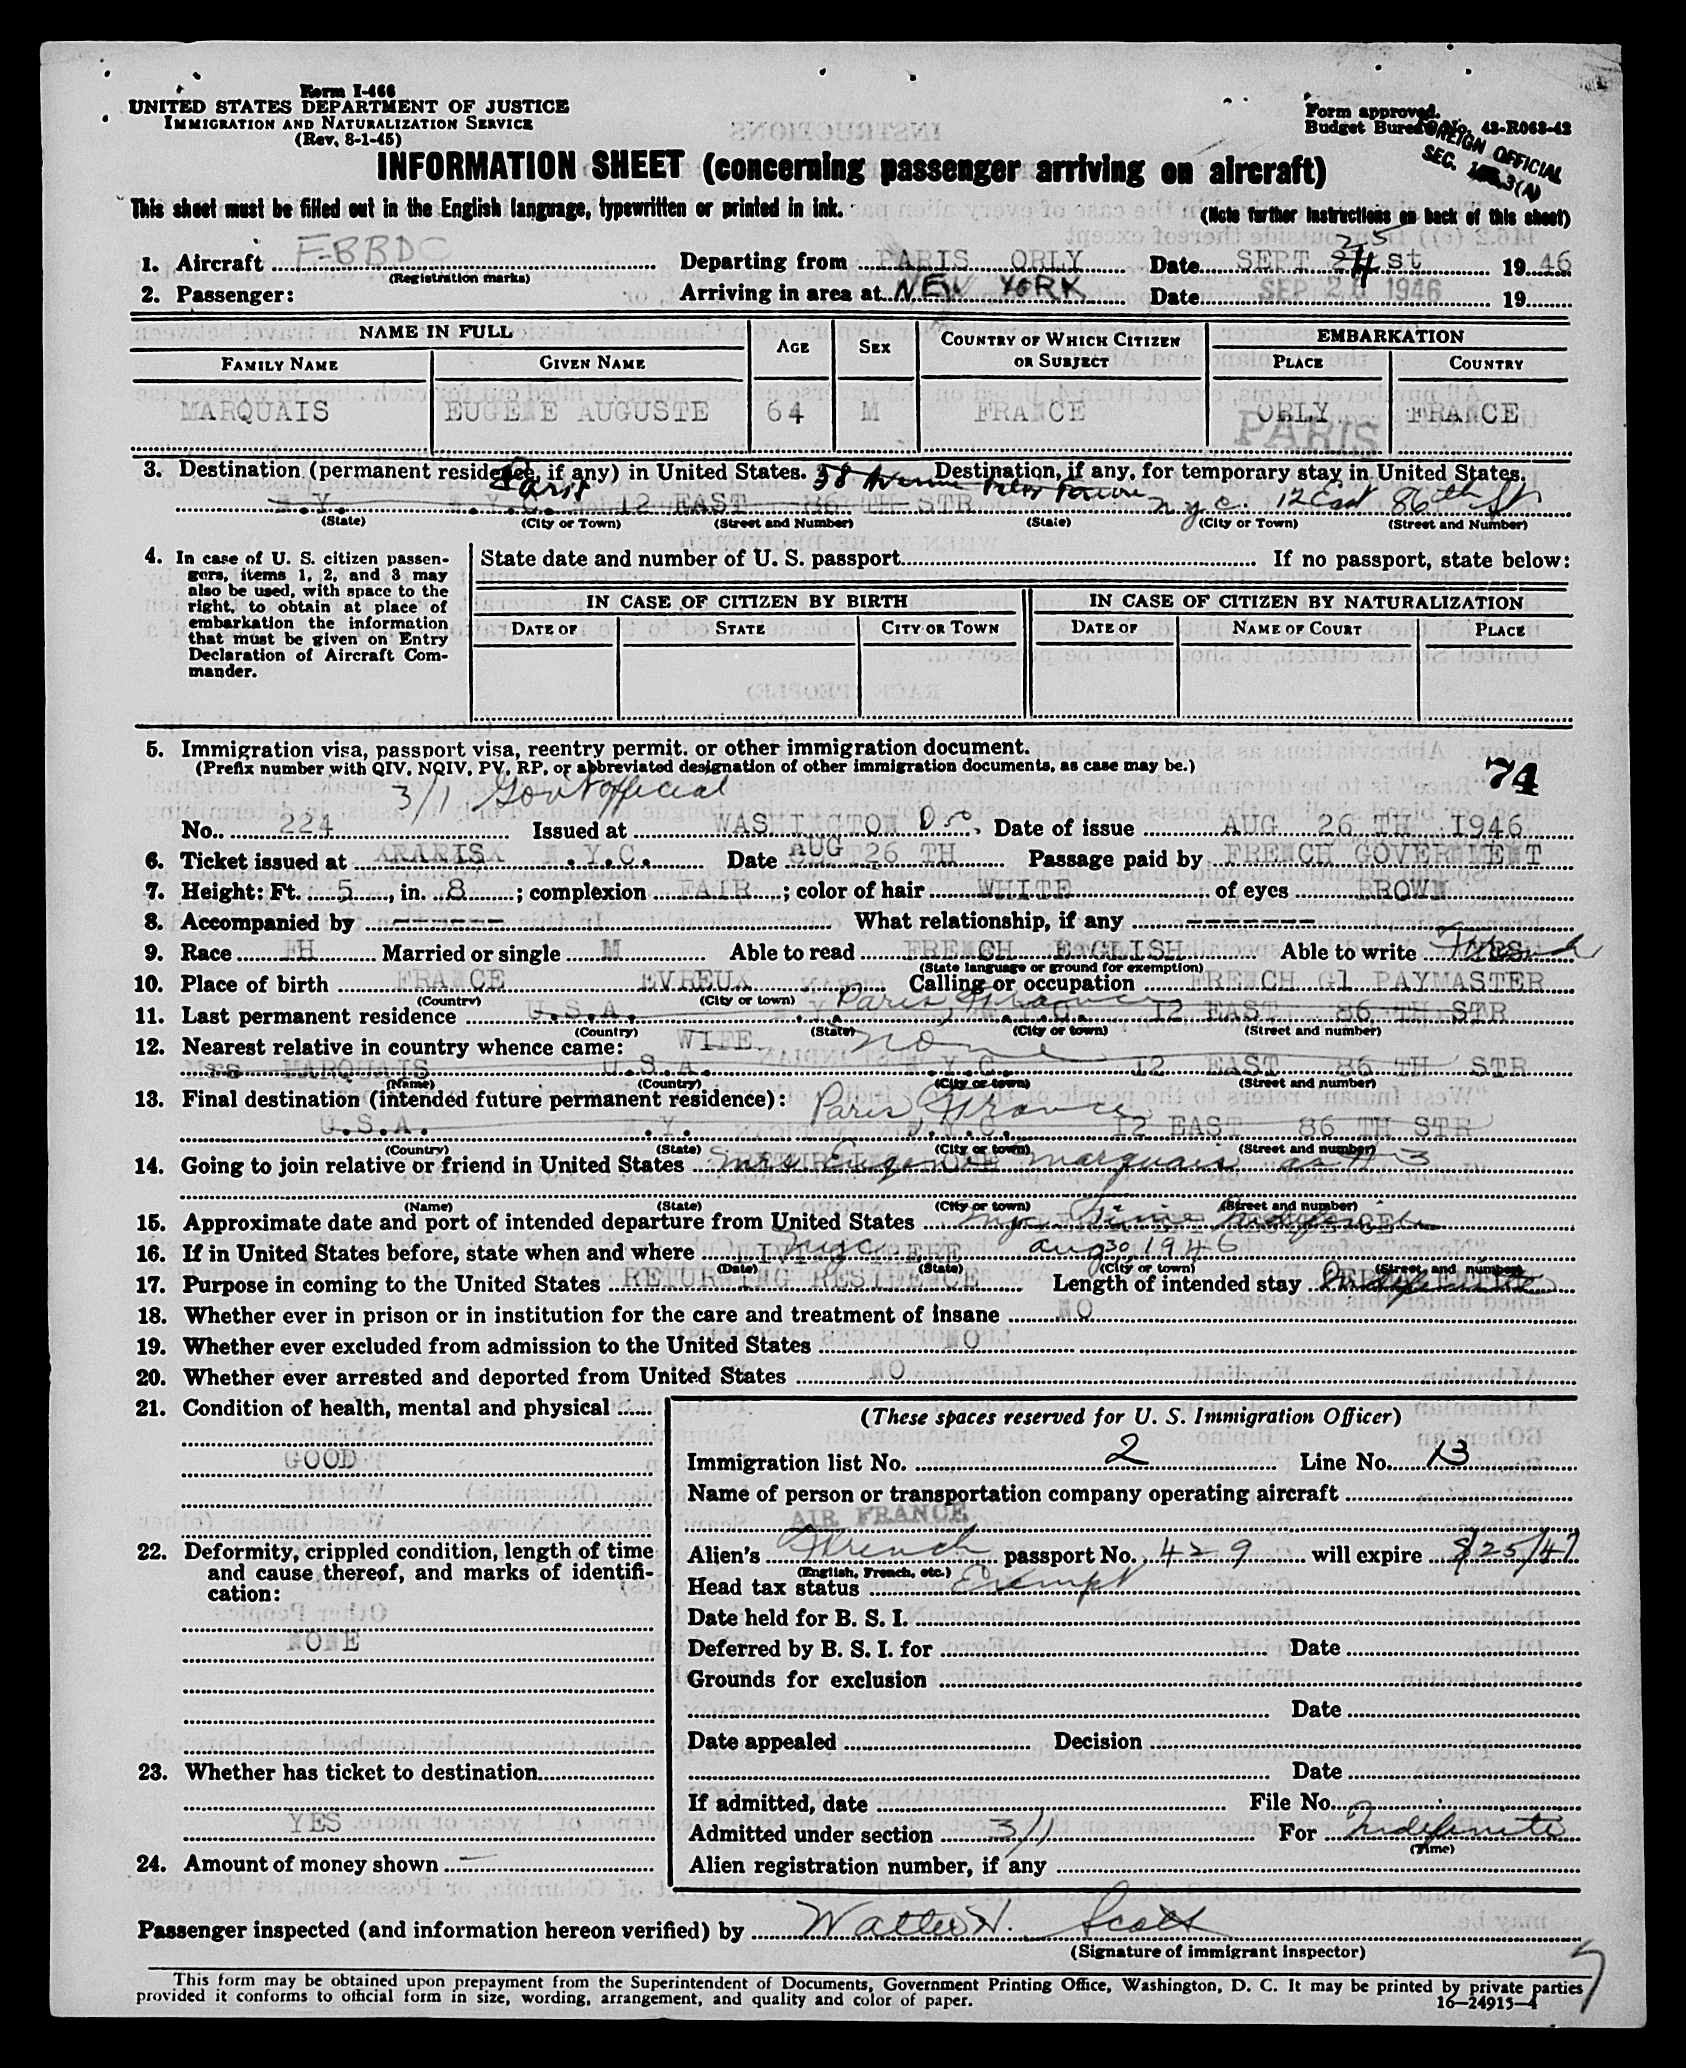 Form I-466
UNITED STATES DEPARTMENT OF JUSTICE
IMMIGRATION AND NATURALIZATION SERVICE
(Rev. 8-1-45)
Form approved.
Budget Bureau No. 43-R063-42
FOREIGN OFFICIAL
SEC. 3(A)
INFORMATION SHEET (concerning passenger arriving on aircraft)
This sheet must be filled out in the English language, typewritten or printed in ink.
(Note further instructions on back of this sheet)
1. Aircraft F-BBDC Departing from PARIS ORLY Date SEPT 25 st 1946
(Registration marks)
2. Passenger: Arriving in area at NEW YORK Date SEP 26 1946 19
NAME IN FULL AGE SEX COUNTRY OF WHICH CITIZEN OR SUBJECT EMBARKATION
FAMILY NAME GIVEN NAME PLACE COUNTRY
MARQUAIS EUGENE AUGUSTE 64 M FRANCE ORLY FRANCE
PARIS
3. Destination (permanent residence, if any) in United States. Destination, if any, for temporary stay in United States.
Paris 58 Avenue
N.Y. N.Y.C. 12 EAST 86 TH STR N.Y.C. 12 East 86th St
(State) (City or Town) (Street and Number) (State) (City or Town) (Street and Number)
4. In case of U. S. citizen passengers, items 1, 2, and 3 may also be used, with space to the right, to obtain at place of embarkation the information that must be given on Entry Declaration of Aircraft Commander.
State date and number of U. S. passport If no passport, state below:
IN CASE OF CITIZEN BY BIRTH IN CASE OF CITIZEN BY NATURALIZATION
DATE OF STATE CITY OR TOWN DATE OF NAME OF COURT PLACE
5. Immigration visa, passport visa, reentry permit, or other immigration document.
(Prefix number with QIV, NQIV, PV, RP, or abbreviated designation of other immigration documents, as case may be.)
74
3/1 Gov't official
No. 224 Issued at WASHINGTON DC. Date of issue AUG 26 TH 1946
6. Ticket issued at PARIS N.Y.C. Date AUG 26 TH Passage paid by FRENCH GOVERNMENT
7. Height: Ft. 5, in. 8; complexion FAIR; color of hair WHITE of eyes BROWN
8. Accompanied by ------- What relationship, if any -------
9. Race FH Married or single M Able to read FRENCH ENGLISH Able to write French
(State language or ground for exemption)
10. Place of birth FRANCE EVREUX Calling or occupation FRENCH G1 PAYMASTER
(Country) (City or town)
Paris France
11. Last permanent residence U.S.A. N.Y. N.Y.C. 12 EAST 86 TH STR
(Country) (State) (City or town) (Street and number)
12. Nearest relative in country whence came: WIFE none
Mrs MARQUAIS U.S.A. N.Y.C. 12 EAST 86 TH STR
(Name) (Country) (City or town) (Street and number)
13. Final destination (intended future permanent residence): Paris France
U.S.A. N.Y. N.Y.C. 12 EAST 86 TH STR
(Country) (State) (City or town) (Street and number)
14. Going to join relative or friend in United States Mrs Eugene Marquais as # 3
(Name) (State) (City or town) (Street and number)
15. Approximate date and port of intended departure from United States
16. If in United States before, state when and where nyc aug 30 1946
(Date) (State) (City or town) (Street and number)
17. Purpose in coming to the United States RETURNING RESIDENCE Length of intended stay Indefinite
18. Whether ever in prison or in institution for the care and treatment of insane NO
19. Whether ever excluded from admission to the United States NO
20. Whether ever arrested and deported from United States NO
21. Condition of health, mental and physical
GOOD
22. Deformity, crippled condition, length of time and cause thereof, and marks of identification:
NONE
23. Whether has ticket to destination
YES
24. Amount of money shown —
(These spaces reserved for U. S. Immigration Officer)
Immigration list No. 2 Line No. 13
Name of person or transportation company operating aircraft
AIR FRANCE
Alien's French passport No. 429 will expire 8/25/47
(English, French, etc.)
Head tax status Exempt
Date held for B. S. I.
Deferred by B. S. I. for Date
Grounds for exclusion
Date
Date appealed Decision
Date
If admitted, date File No.
Admitted under section 3/1 For Indefinite
(Time)
Alien registration number, if any
Passenger inspected (and information hereon verified) by Walter H. Scott
(Signature of immigrant inspector)
This form may be obtained upon prepayment from the Superintendent of Documents, Government Printing Office, Washington, D. C. It may be printed by private parties
provided it conforms to official form in size, wording, arrangement, and quality and color of paper.
16—24915-4